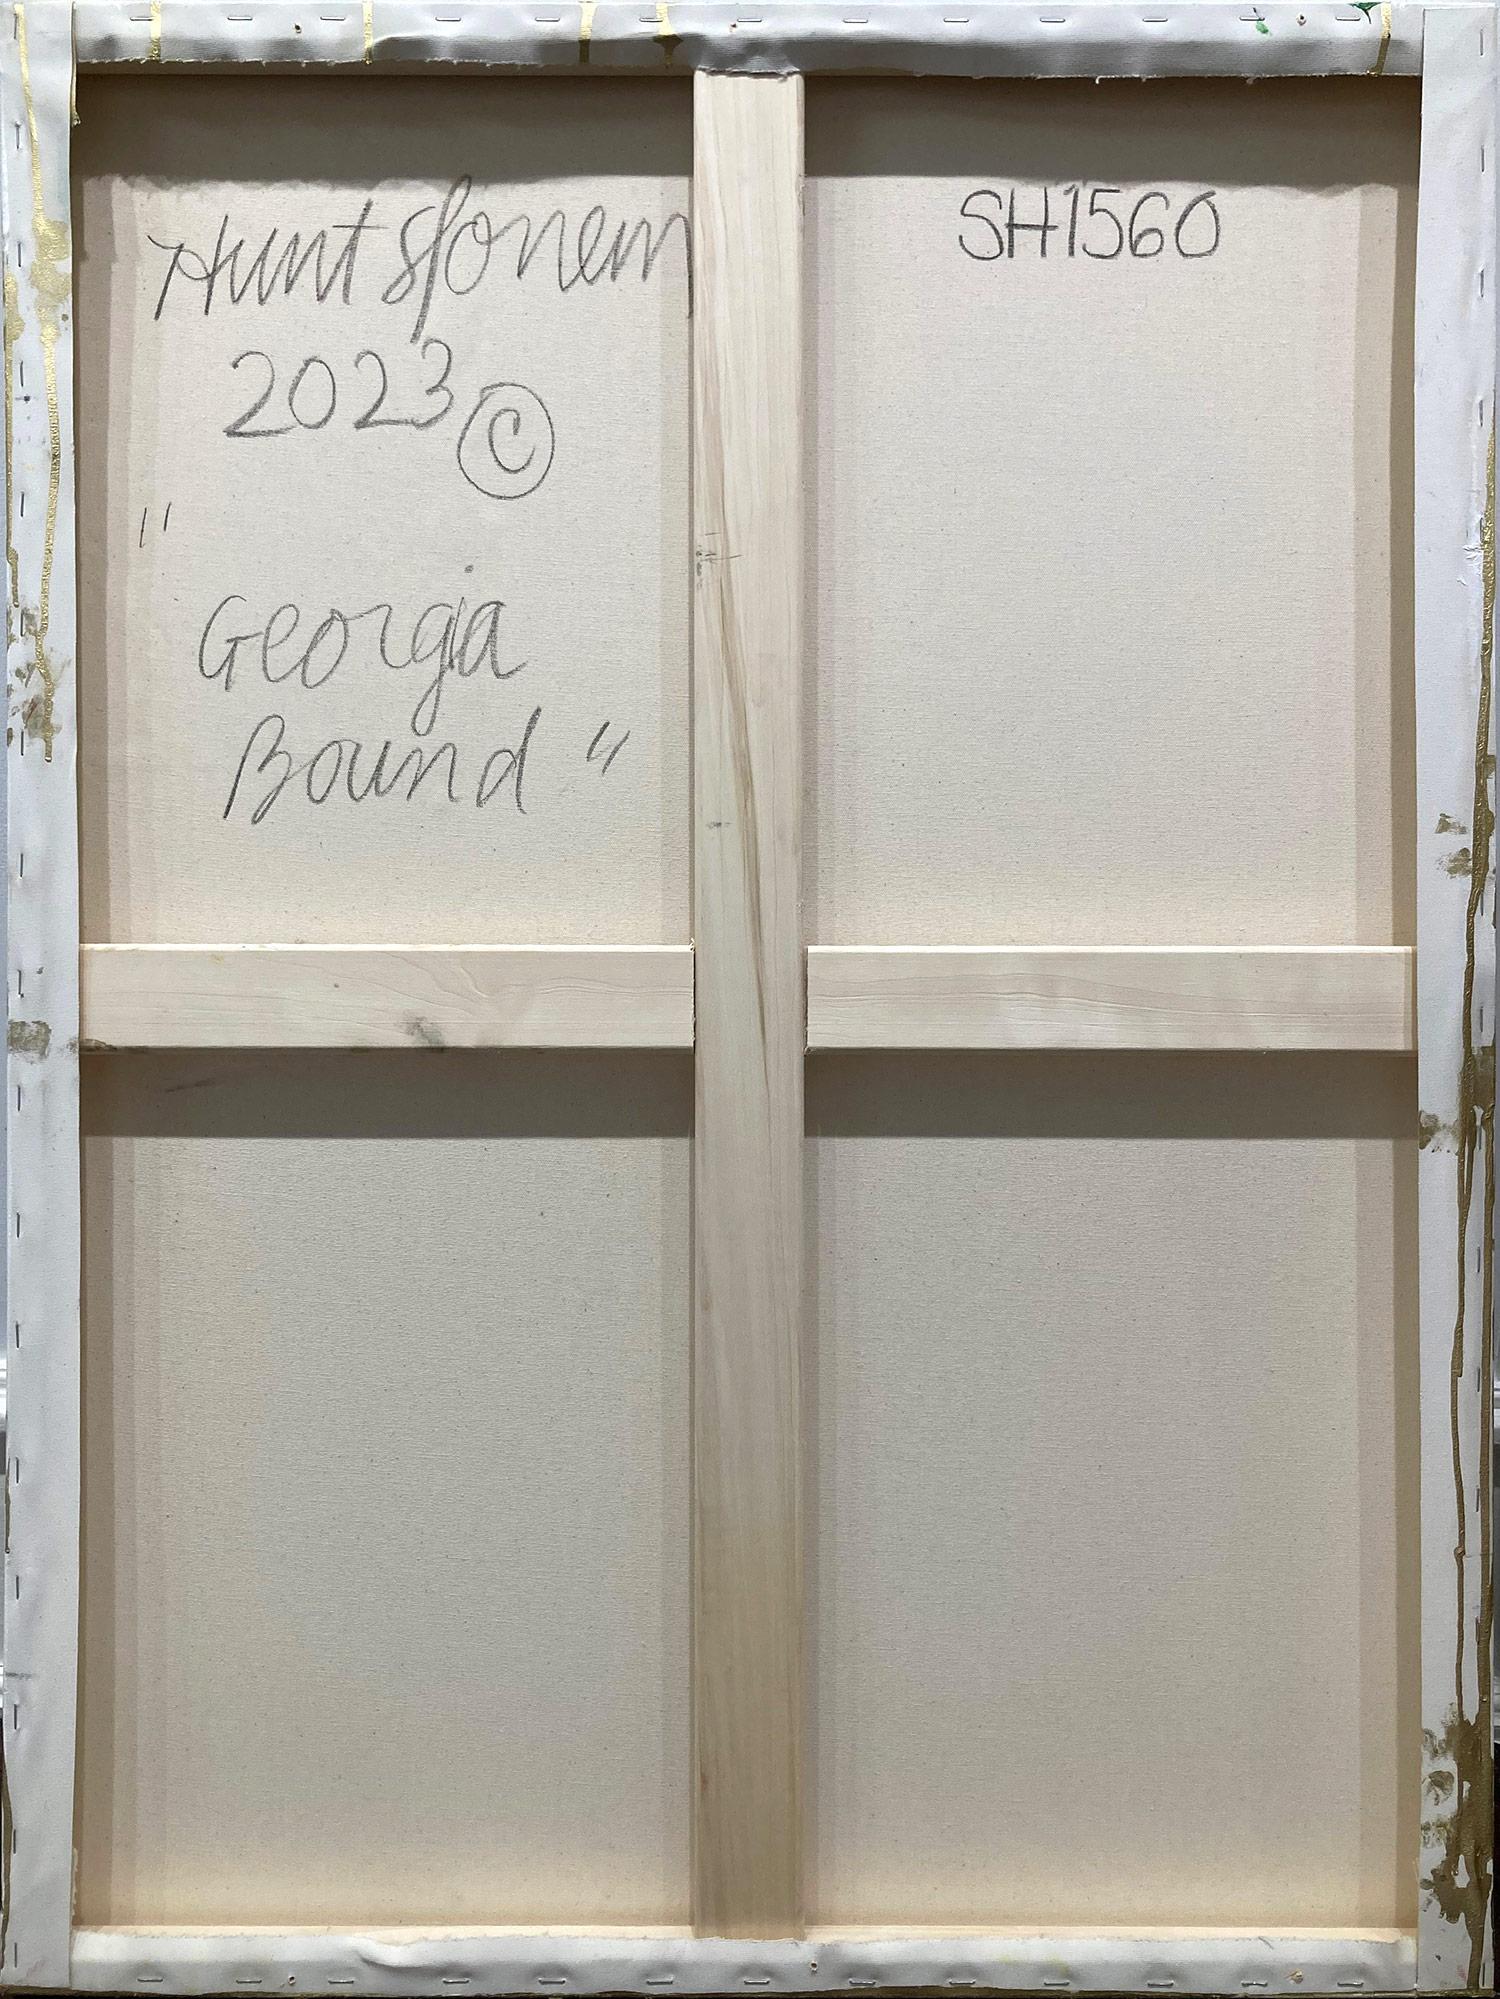 Hunt Slonem
2023 ©
"
Georgia
Bound "
SH1560